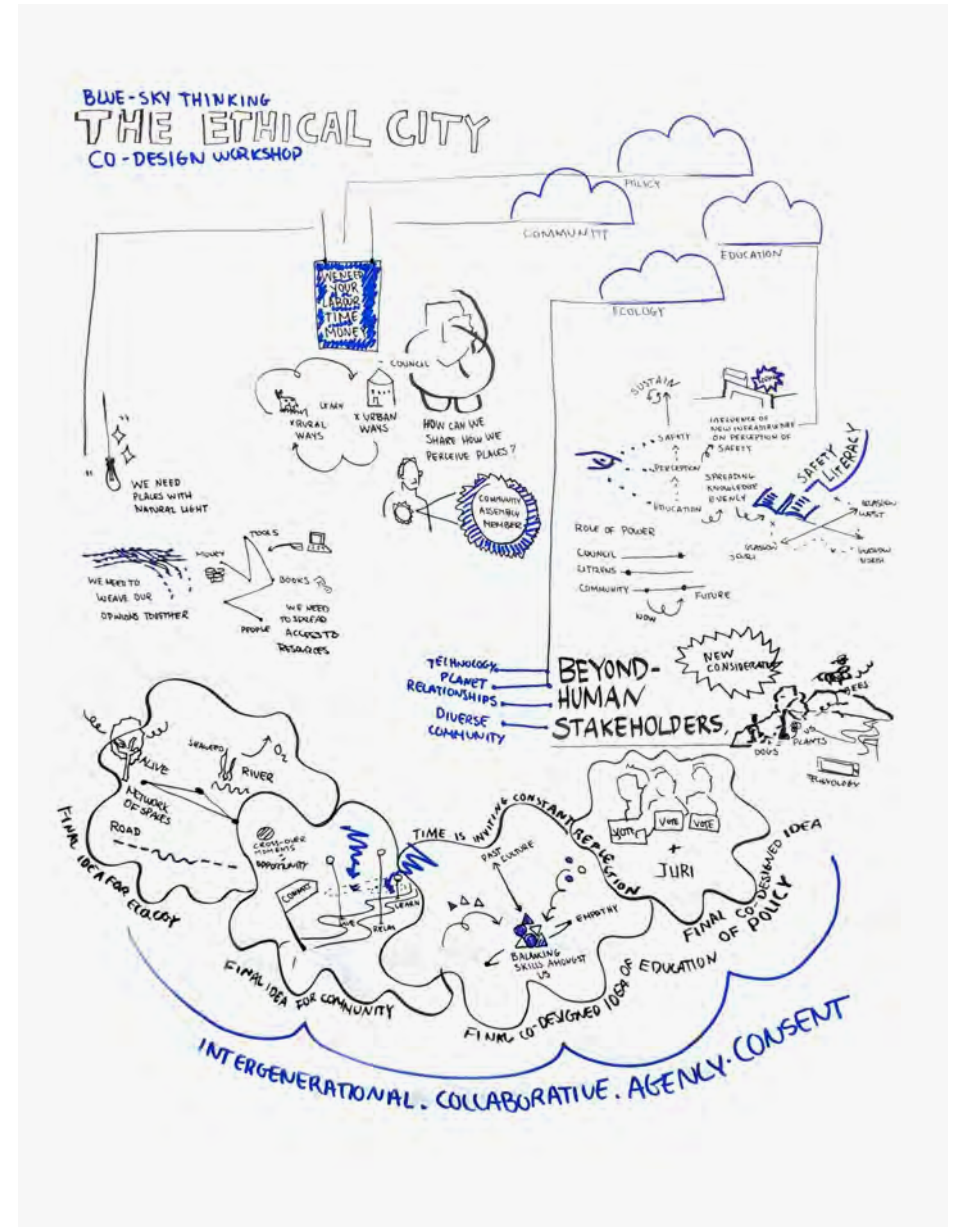 BLUE-SKY THINKING
THE ETHICAL CITY
CO-DESIGN WORKSHOP
POLICY
COMMUNITY
EDUCATION
ECOLOGY
WE NEED
YOUR
LABOUR
TIME
MONEY
COUNCIL
LEARN
RURAL
WAYS
X URBAN
WAYS
HOW CAN WE
SHARE HOW WE
PERCEIVE PLACES?
COMMUNITY
ASSEMBLY
MEMBER
WE NEED
PLACES WITH
NATURAL LIGHT
TOOLS
MONEY
BOOKS
PEOPLE
WE NEED TO
WEAVE OUR
OPINIONS TOGETHER
WE NEED
TO SPREAD
ACCESS TO
RESOURCES
SUSTAIN
SAFETY
PERCEPTION
EDUCATION
INFLUENCE OF
NEW INFRASTRUCTURE
ON PERCEPTION OF
SAFETY
SPREADING
KNOWLEDGE
EVENLY
SAFETY
LITERACY
GLASGOW
GLASGOW
NORTH
ROLE OF POWER
COUNCIL
CITIZENS
COMMUNITY
NOW
FUTURE
TECHNOLOGY
PLANET
RELATIONSHIPS
DIVERSE
COMMUNITY
BEYOND-
HUMAN
STAKEHOLDERS.
NEW
BEES
US
PLANTS
DOGS
ALIVE
O2
RIVER
NETWORK
OF SPACES
ROAD
FINAL IDEA FOR ECOLOGY
CROSS-OVER
MOMENTS
OPPORTUNITY
CONNECT
LEARN
RELAX
FINAL IDEA FOR COMMUNITY
TIME IS INVITING CONSTANT REFLECTION
PAST
CULTURE
EMPATHY
BALANCING
SKILLS AMONGST
US
FINAL CO-DESIGNED IDEA OF EDUCATION
VOTE
VOTE
VOTE
+
JURI
FINAL CO-DESIGNED IDEA
OF POLICY
INTERGENERATIONAL. COLLABORATIVE. AGENCY. CONSENT